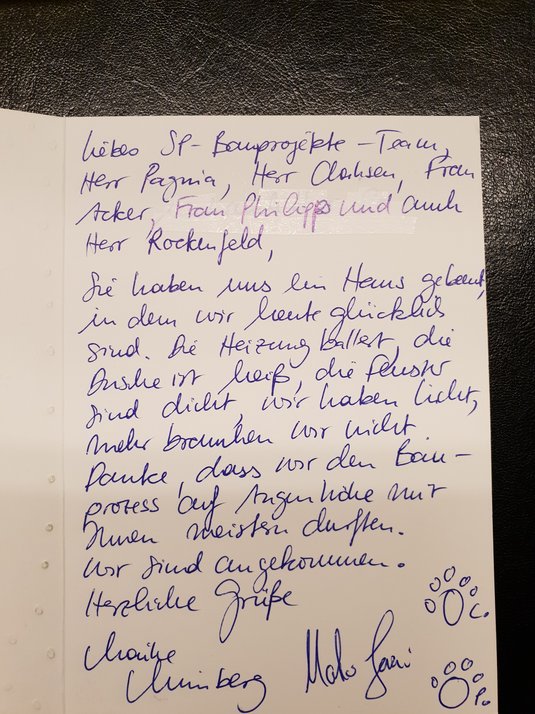 Liebes SP-Bauprojekte-Team,
Herr Pagnia, Herr Clahsen, Frau
Acker, Frau Philipps und auch
Herr Rockenfeld,
Sie haben uns ein Haus gebaut,
in dem wir heute glücklich
sind. Die Heizung ballert, die
Dusche ist heiß, die Fenster
sind dicht, wir haben Licht,
mehr brauchen wir nicht
Danke, dass wir den Bau-
prozess auf Augenhöhe mit
Ihnen meistern durften.
Wir sind angekommen.
Herzliche Grüße
C.
Maike
P.